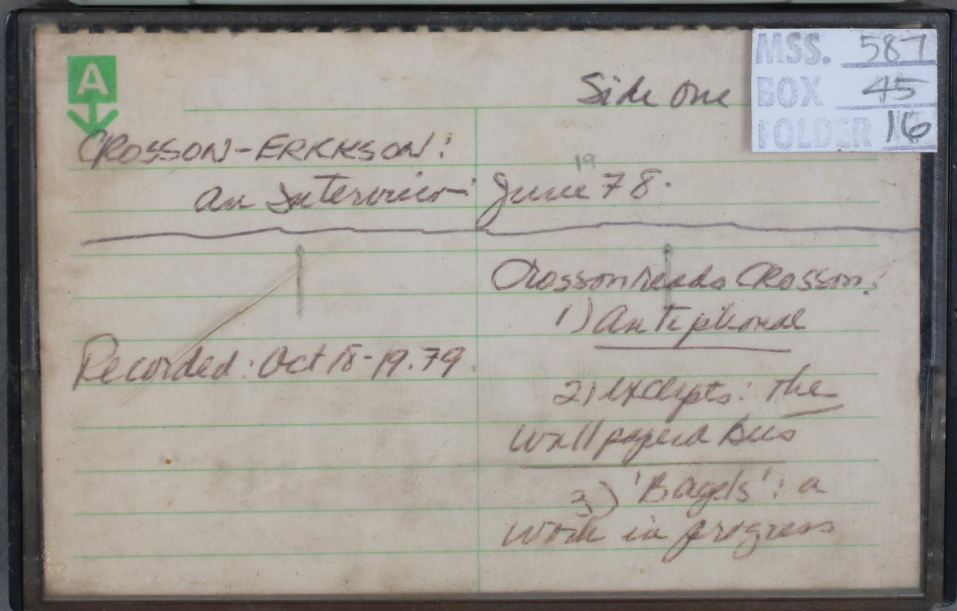 A
Side One
MSS. 587
BOX 45
FOLDER 16
CROSSON-ERICKSON:
an Interview: June 1978.
Recorded: Oct 18-19.79
Crosson reads Crosson:
1) Antiphonal
2) excerpts: The
Wallpapered Bus
3) 'Bagels': a
work in progress